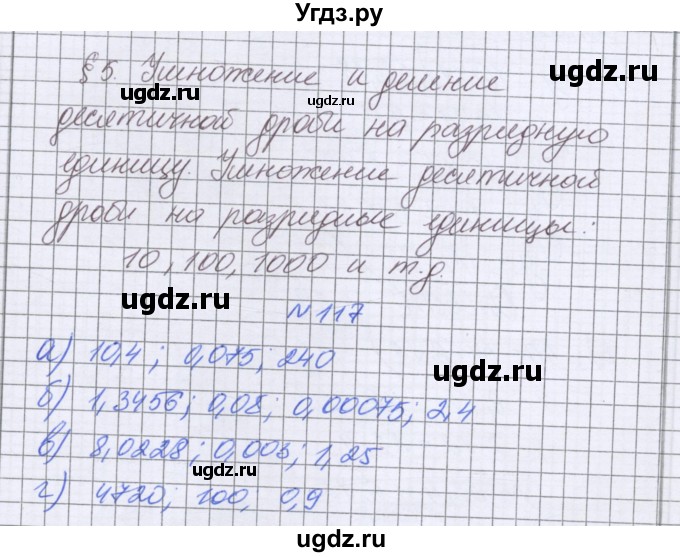 Угдз.ру
§ 5. Умножение и деление
десятичной дроби на разрядную
единицу. Умножение десятичной
дроби на разрядные единицы:
10, 100, 1000 и т.д.
№ 117
а) 10,4; 0,075; 240
б) 1,3456; 0,08; 0,00075; 2,4
в) 8,0228; 0,003; 1,25
г) 4720; 100, 0,9
ugdz.ru
ugdz.ru
ugdz.ru
ugdz.ru
ugdz.ru
ugdz.ru
ugdz.ru
ugdz.ru